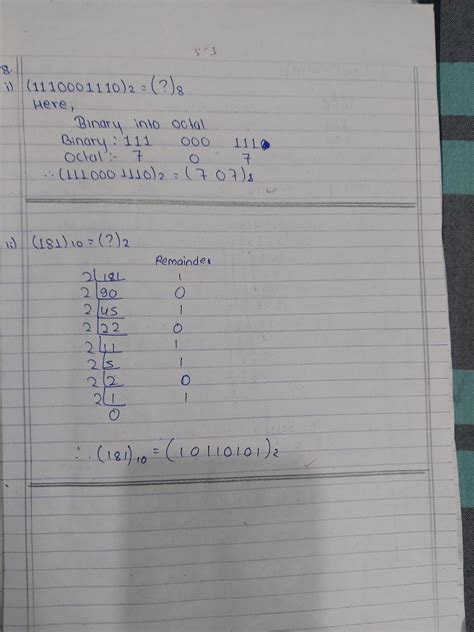 8.
i) (1110001110)₂ = (?)₈
Here,
Binary into octal
Binary : 111 000 111
Octal :- 7 0 7
∴ (111000 1110)₂ = (7 07)₈
ii) (181)₁₀ = (?)₂
Remainder
2 181 1
2 90 0
2 45 1
2 22 0
2 11 1
2 5 1
2 2 0
2 1 1
0
∴ (181)₁₀ = (10110101)₂